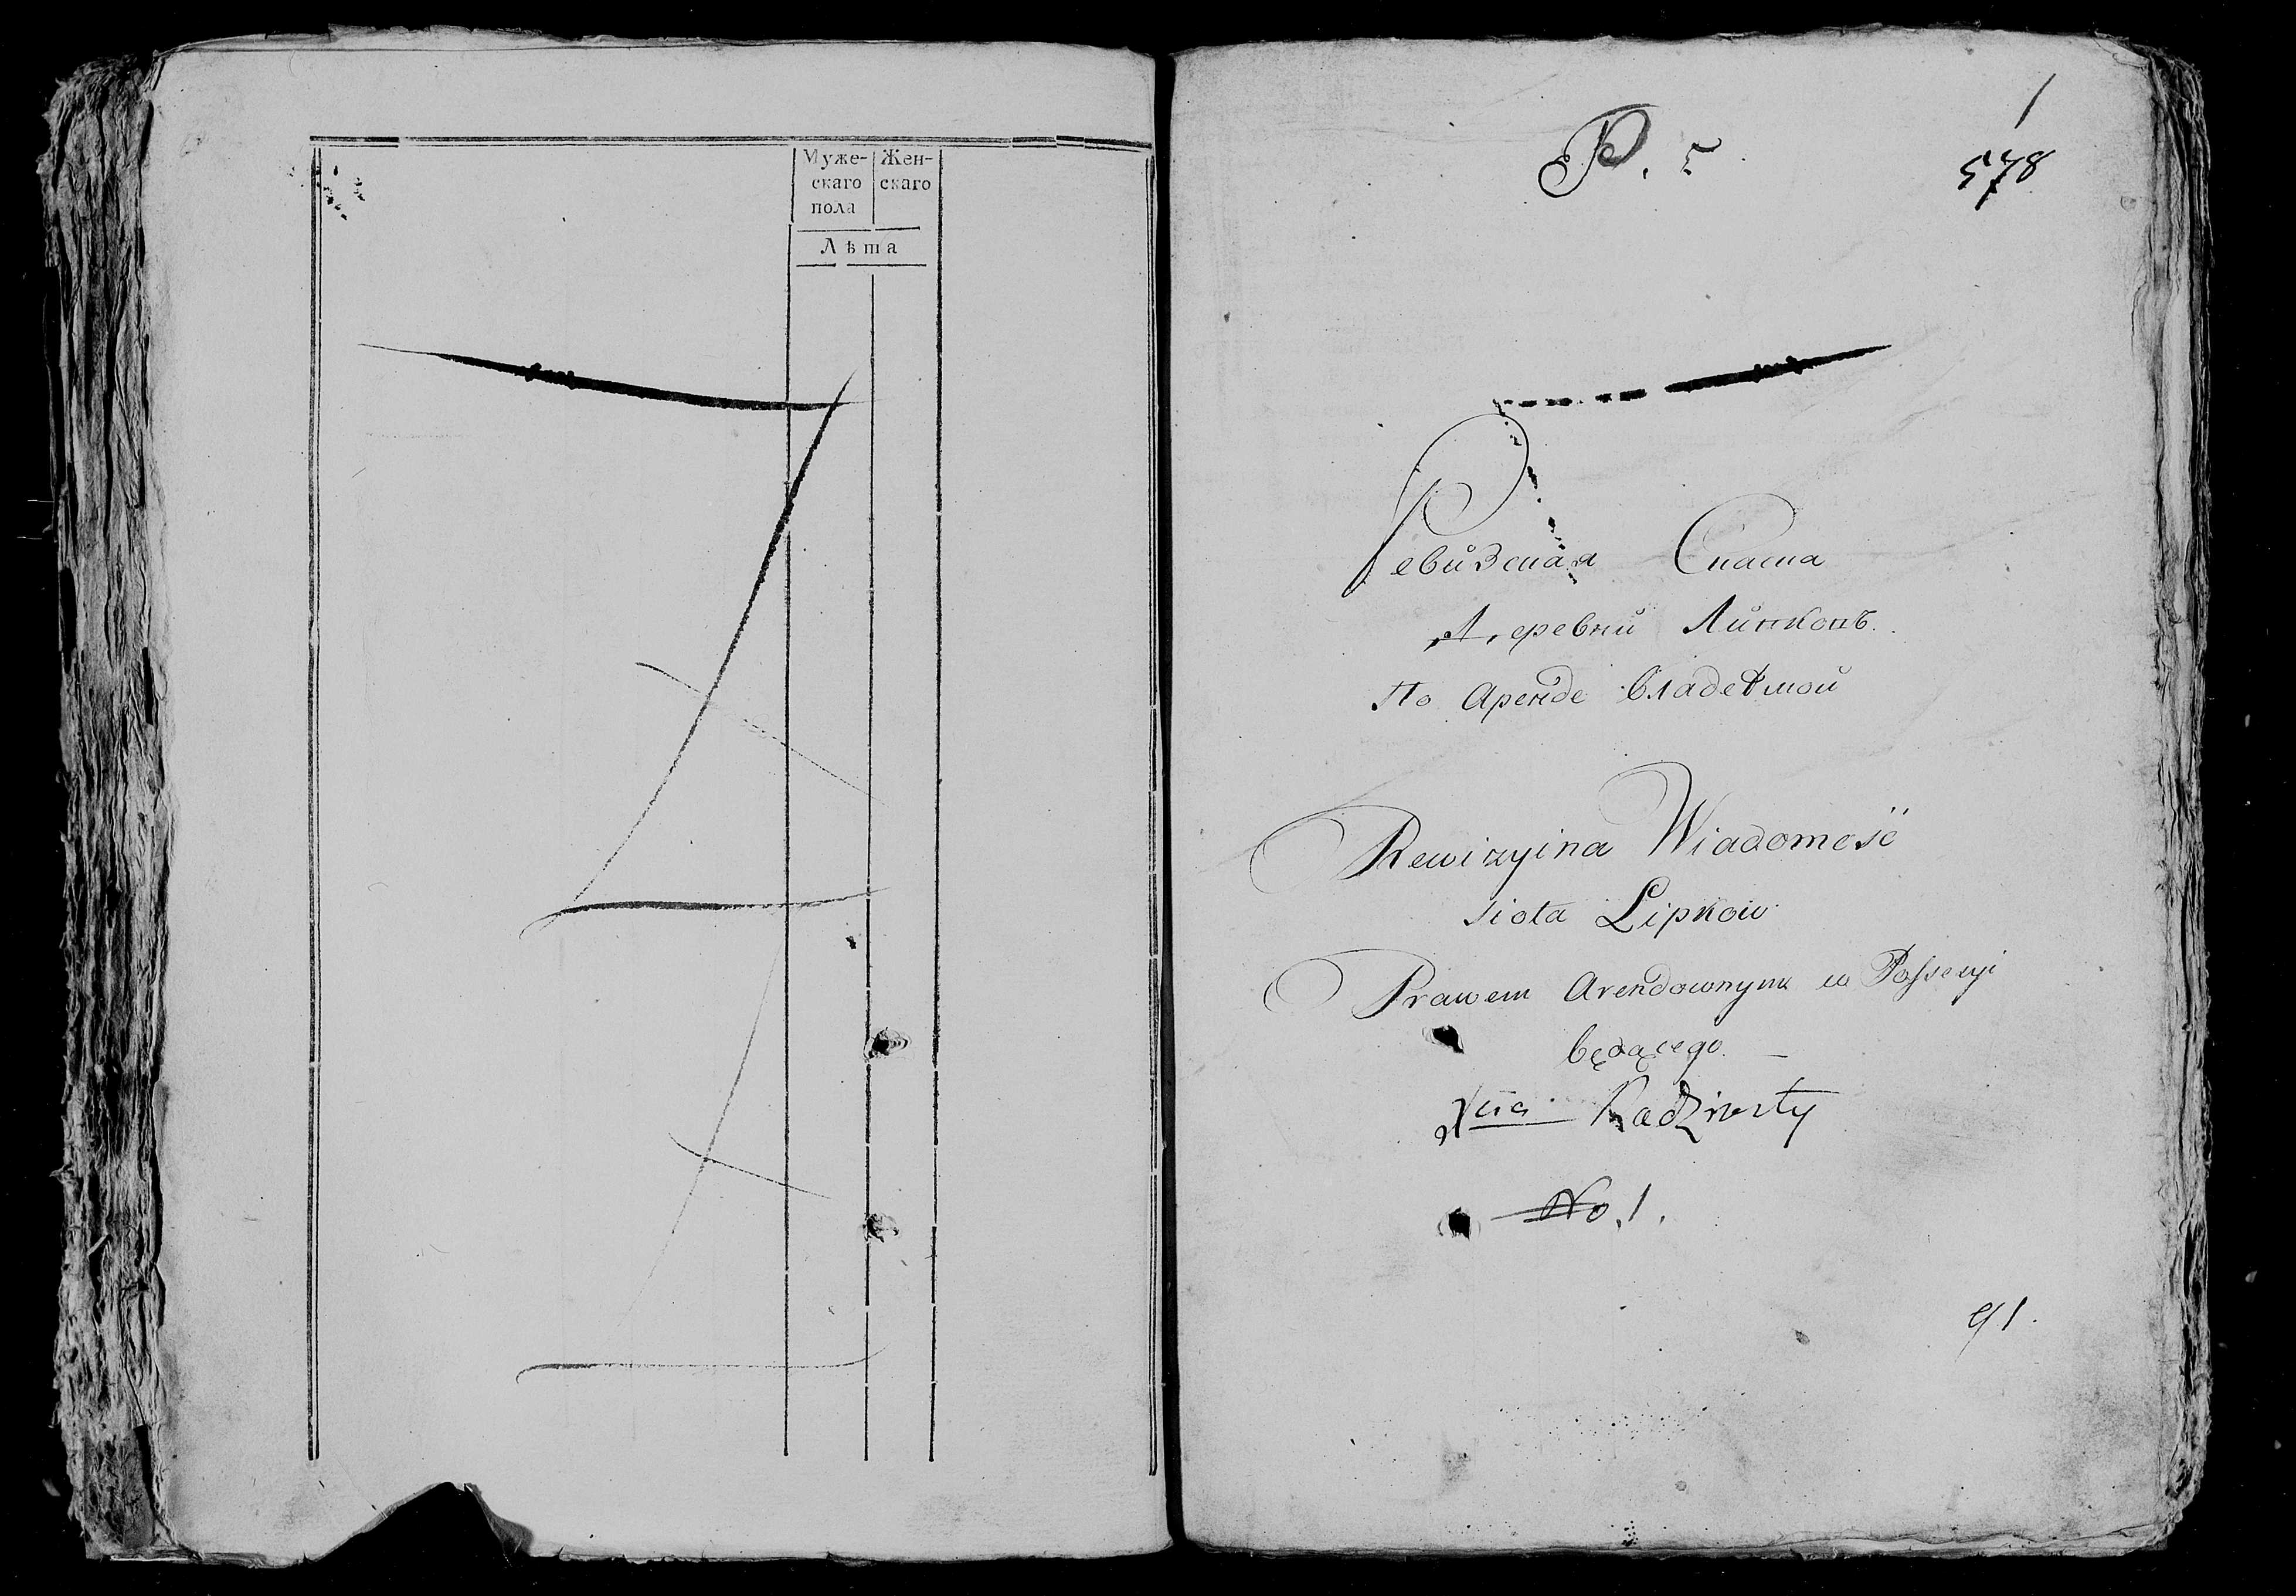 Муже-
скаго
пола
Жен-
скаго
Лѣта
1
Р. 5
578
Ревизская Скаска
Деревни Липковъ
По Аренде владеемой
Rewizyina Wiadomość
sioła Lipkow
Prawem Arendownym w Possesyi
będącego
No. 1.
91.